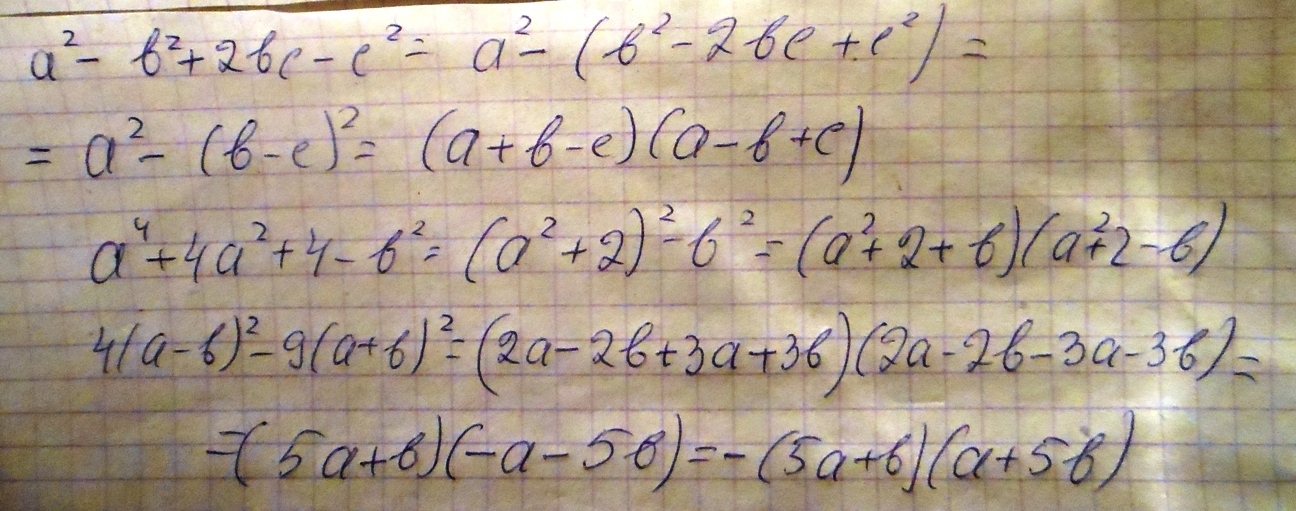 a² - b² + 2bc - c² = a² - (b² - 2bc + c²) =
= a² - (b - c)² = (a + b - c)(a - b + c)
a⁴ + 4a² + 4 - b² = (a² + 2)² - b² = (a² + 2 + b)(a² + 2 - b)
4(a - b)² - 9(a + b)² = (2a - 2b + 3a + 3b)(2a - 2b - 3a - 3b) =
= (5a + b)(-a - 5b) = -(5a + b)(a + 5b)